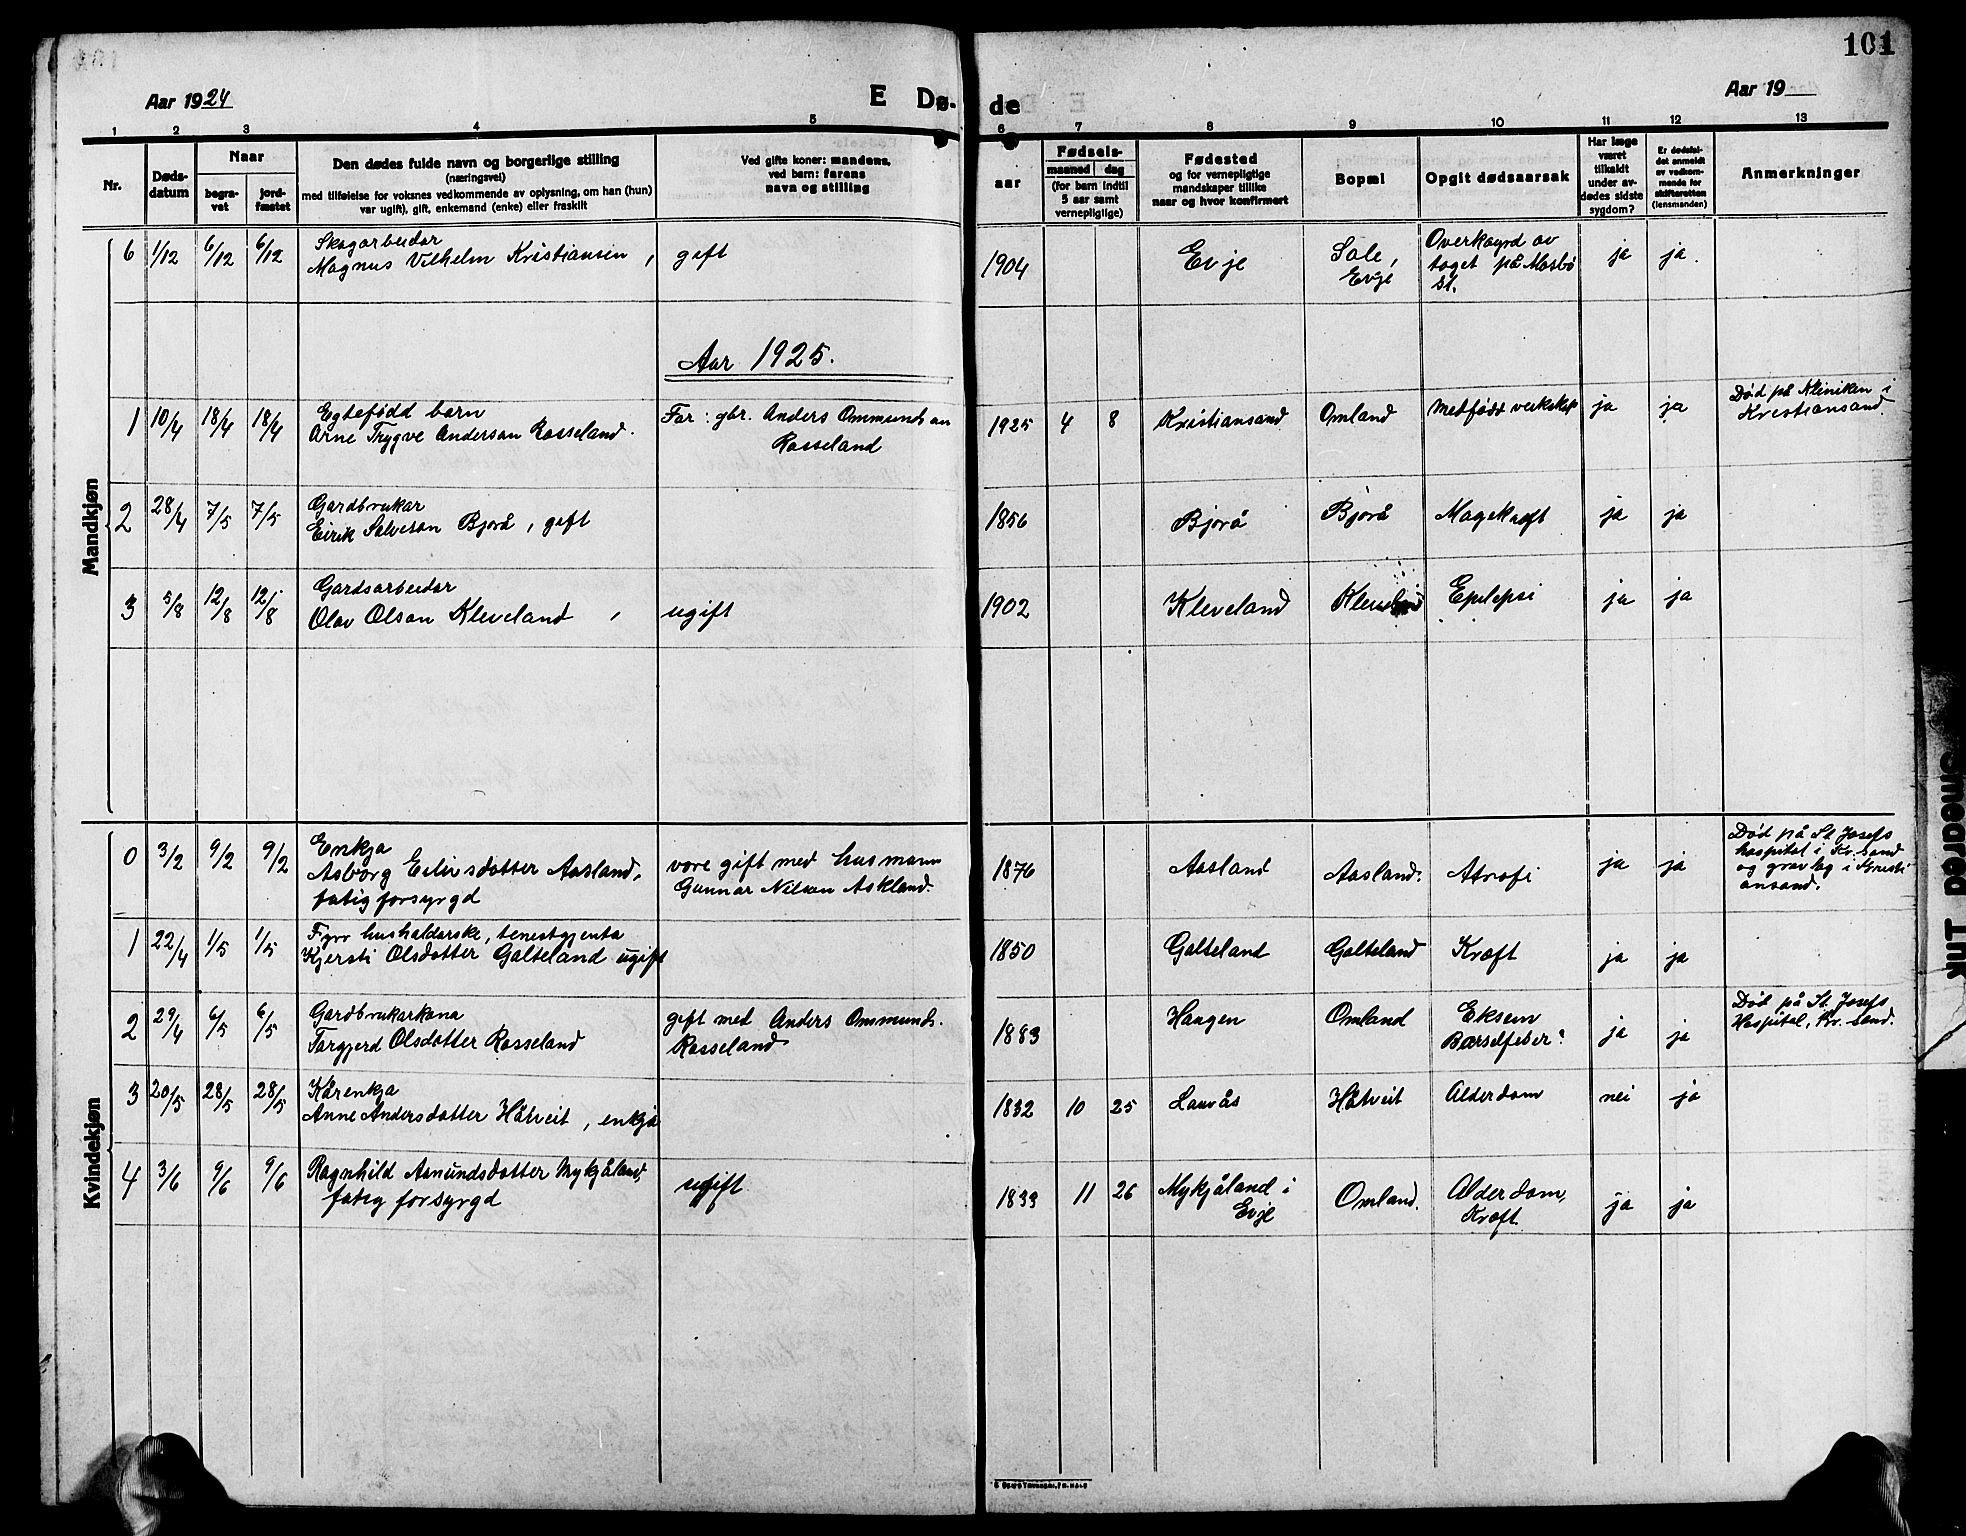 101
Aar 1924 E Dø- de Aar 19
1 2 3 4 5 6 7 8 9 10 11 12 13
Nr.
Døds-
datum
Naar
begra-
vet
jord-
fæstet
Den dødes fulde navn og borgerlige stilling
(næringsvei)
med tilføielse for voksnes vedkommende av oplysning, om han (hun)
var ugift), gift, enkemand (enke) eller fraskilt
Ved gifte koner: mandens,
ved barn: farens
navn og stilling
aar
Fødsels-
maaned dag
(for barn indtil
5 aar samt
vernepligtige)
Fødested
og for vernepligtige
mandskaper tillike
naar og hvor konfirmert
Bopæl
Opgit dødsaarsak
Har læge
været
tilkaldt
under av-
dødes sidste
sygdom?
Er dødsfal-
det anmeldt
av vedkom-
mende for
skifteretten
(lensmanden)
Anmerkninger
Mandkjøn
6 1/12 6/12 6/12 Skogarbeidar
Magnus Vilhelm Kristiansen, gift 1904 Evje Sole,
Evje
Overkøyrd av
toget på Mosbø
St.
ja ja.
Aar 1925.
1 10/4 18/4 18/4 Egtefødd barn
Arne Trygve Anderson Rosseland.
Far: gbr. Anders Ommundson
Rosseland
1925 4 8 Kristiansand Omland Medfødt veikskap ja ja
Død på Kliniken i
Kristiansand.
2 28/4 7/5 7/5 Gardbrukar
Eirik Salveson Bjorå, gift 1856 Bjorå Bjorå Magekræft ja ja
3 5/8 12/8 12/8 Gardsarbeidar
Olav Olson Kleveland, ugift 1902 Kleveland Kleveland Epilepsi ja ja
Kvindekjøn
0 3/2 9/2 9/2 Enkja
Asborg Eilivsdotter Aasland,
fatigforsyrgd
vore gift med husmann
Gunnar Nilsen Askland.
1876 Aasland Aasland. Atrofi ja ja
Død på St. Josefs
hospital i Kr.sand
og gravlag i Kristi
ansand.
1 22/4 1/5 1/5 Fyrv hushaldarske, tenestgjenta
Kjersti Olsdotter Galteland ugift 1850 Galteland Galteland Kræft ja ja
2 29/4 6/5 6/5 Gardbrukarkona
Torgjerd Olsdotter Rosseland
gift med Anders Ommunds.
Rosseland
1883 Haugen Omland Eksem
Barselfeber?
ja ja
Død på St. Josefs
Hospital, Kr.sand.
3 20/5 28/5 28/5 Kårenkja
Anne Andersdotter Håtveit, enkja 1832 10 25 Lauvås Håtveit Alderdom nei ja
4 3/6 9/6 9/6 Ragnhild Asmundsdotter Mykjåland,
fatig forsyrgd
ugift 1833 11 26 Mykjåland i
Evje
Omland. Alderdom,
Kræft.
ja ja
Smeared Ink